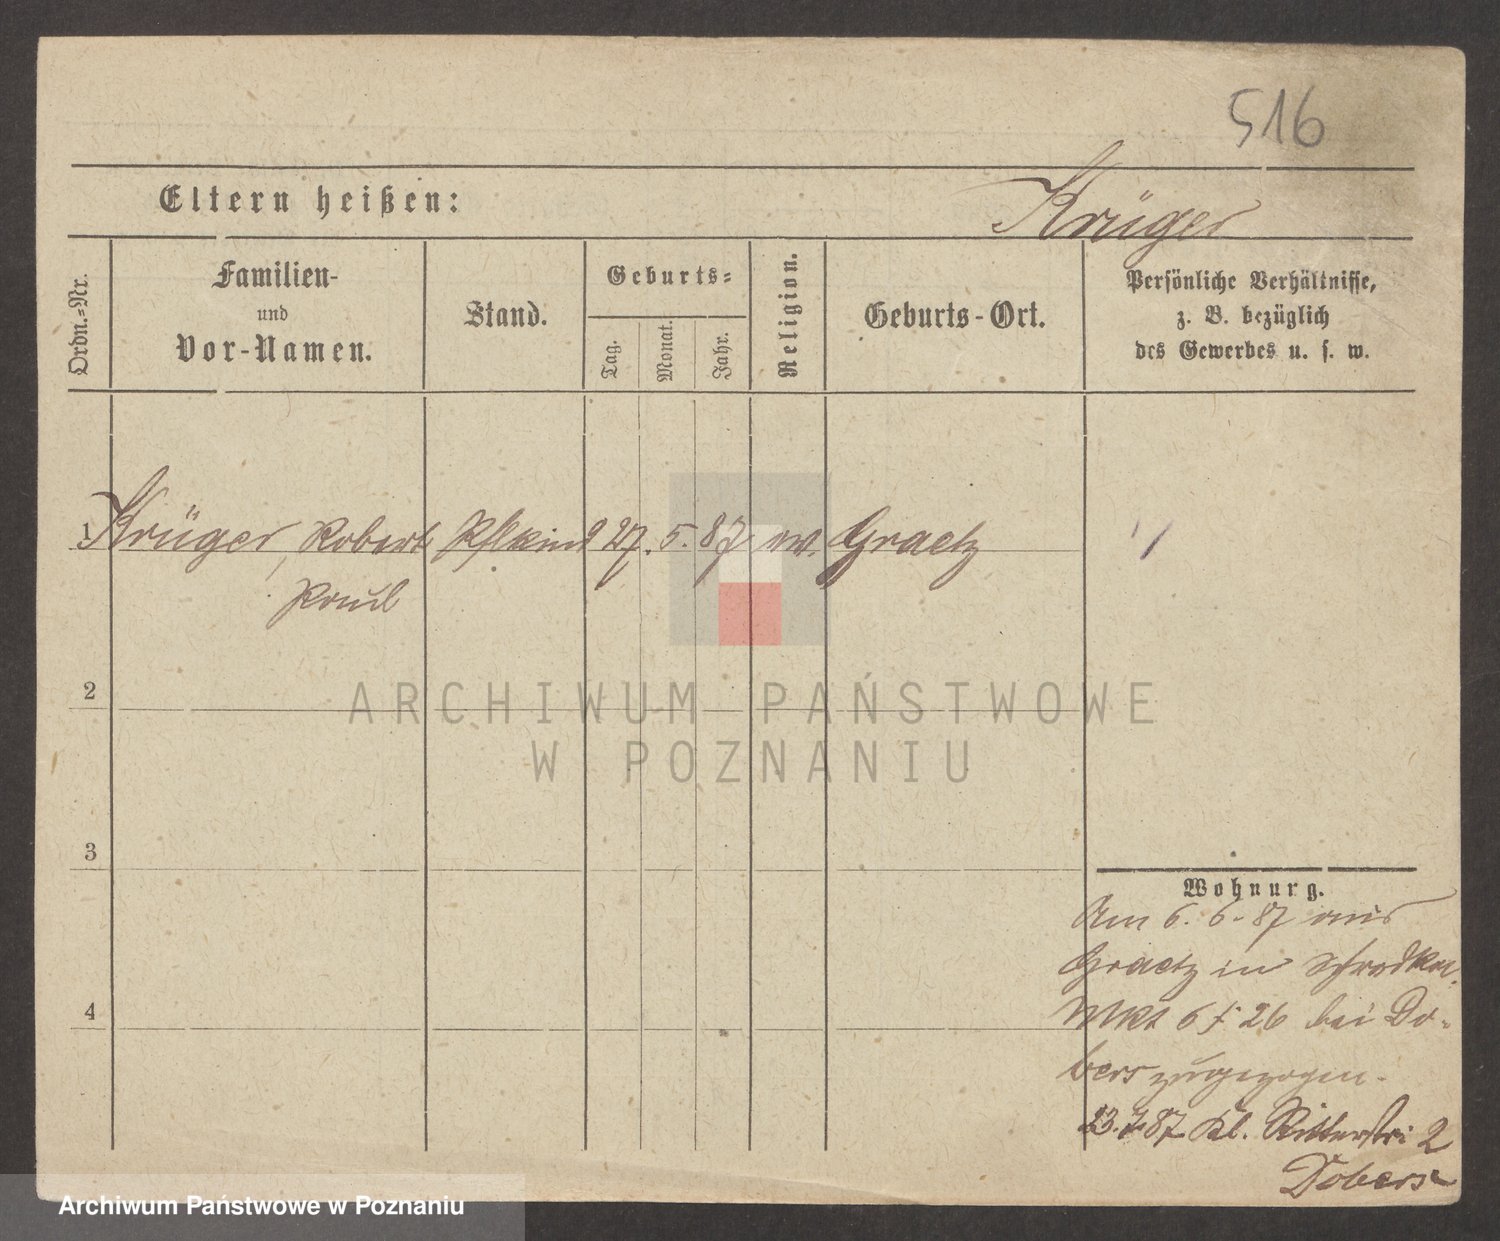 516
Eltern heißen:
Krüger
Ordn.=Nr.
Familien-
und
Vor-Namen.
Stand.
Geburts=
Tag.
Monat.
Jahr.
Religion.
Geburts-Ort.
Persönliche Verhältnisse,
z. B. bezüglich
des Gewerbes u. s. w.
1 Krüger, Robert Pflkind 27. 5. 87 ev. Graetz
Paul
2
3
4
Wohnung.
Am 6. 6. 87 aus
Graetz in
Mkt 6 26 bei Do-
bers zugezogen.
23.7.87 Kl. Ritterstr 2
Dobers
ARCHIWUM PAŃSTWOWE
W POZNANIU
Archiwum Państwowe w Poznaniu